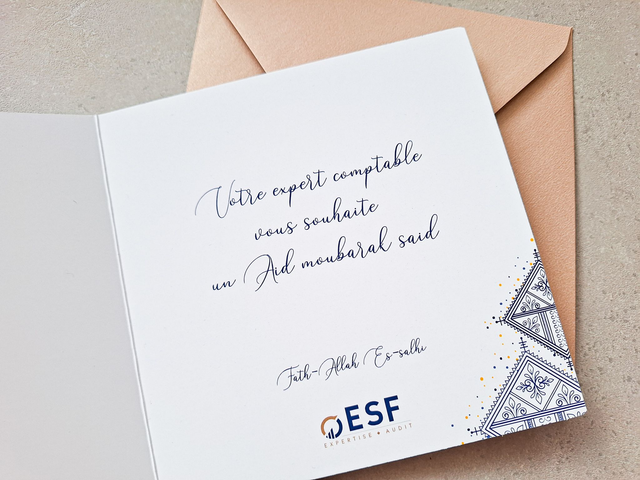 Votre expert comptable
vous souhaite
un Aid moubarak said
Fath-Allah Es-salhi
ESF
EXPERTISE • AUDIT